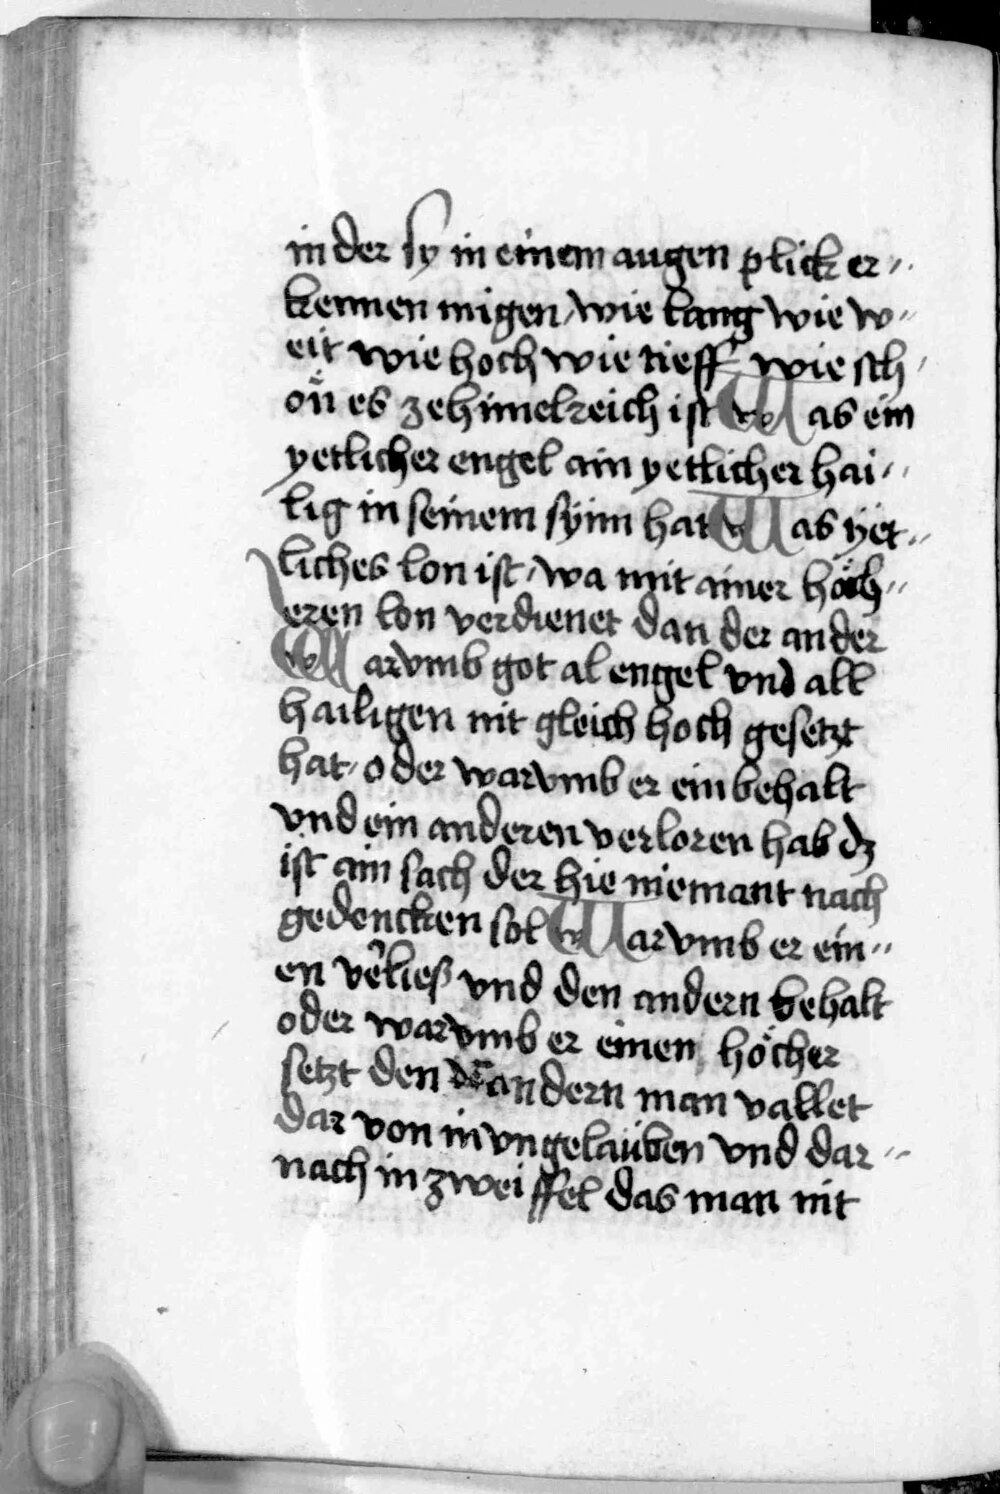 in der sy in einem augen plick er〃
kennen migen / wie lang wie w〃
eit wie hoch wie tieff wie sch〃
ön es ze himelreich ist Was ein
yetlicher engel ain yetlicher hai〃
lig in seinem synn hat Was yet〃
liches lon ist / wa mit ainer höch〃
eren lon verdienet dan der ander
Warvmb got al engel vnd all
hailigen nit gleich hoch gesetzt
hat / oder warvmb er ein behalt
vnd ein anderen verloren hab dz
ist ain sach der hie niemant nach
gedencken sol Warvmb er ein〃
en v̉ließ vnd den andern behalt
oder warvmb er einen höcher
setzt den andern man vallet
dar von in vngelauben vnd dar〃
nach in zweiffel das man nit